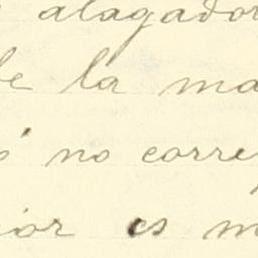 alagador
be la ma
no corre
ior es m